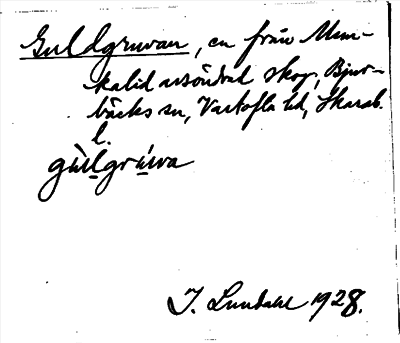 Guldgruvan, en från Mun-
kalid avsöndrad skog, Bjur-
bäcks sn, Vartofta hd, Skarab.
l.
gùlgrúva
I. Lundahl 1928.